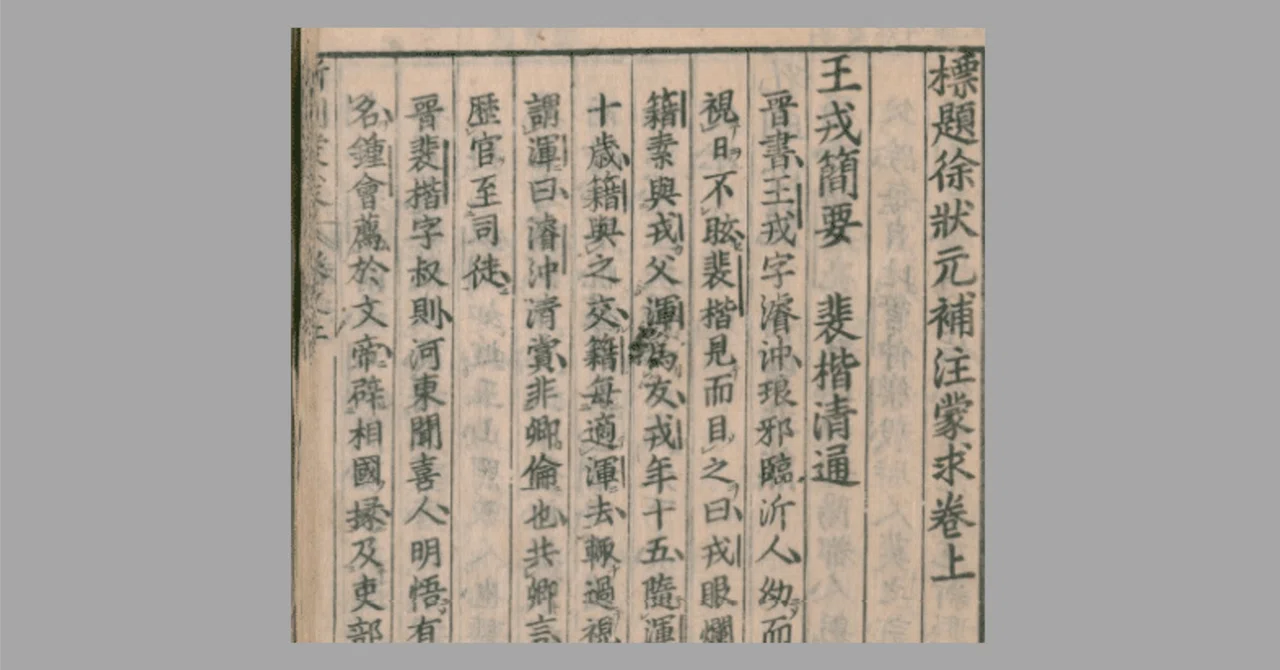 標題徐狀元補注蒙求卷上
王戎簡要 裴楷清通
晉書王戎字濬沖琅邪臨沂人幼而
視日不眩裴楷見而目之曰戎眼爛
籍素與戎父渾爲友戎年十五隨渾
十歳籍與之交籍每適渾去輒過視
謂渾曰濬沖清賞非卿倫也共卿言
歴官至司徒
晉裴楷字叔則河東聞喜人明悟有
名鍾會薦於文帝辟相國掾及吏部